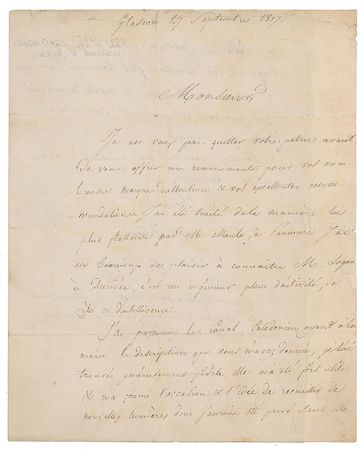 Glascow 27 Septembre 1817
Monsieur
Je ne veux pas quitter votre patrie avant
de vous offrir mes remerciements pour vos nom-
breuses marques d'attention & vos excellentes recom-
mandations. J'ai été traité de la manière la
plus flatteuse par M. Maule, à Panmure. J'ai
eu beaucoup de plaisir à connaître M. Logan
à Dundee, c'est un ingénieur plein d'activité, de
zèle & d'intelligence.
J'ai parcouru le Canal Calédonien ayant à la
main la description que vous m'avez donnée, je l'ai
trouvée généralement fidèle, elle m'a été fort utile
& m'a fourni l'occasion de recueillir de
nouvelles lumières dont j'aurais été privé sans elle